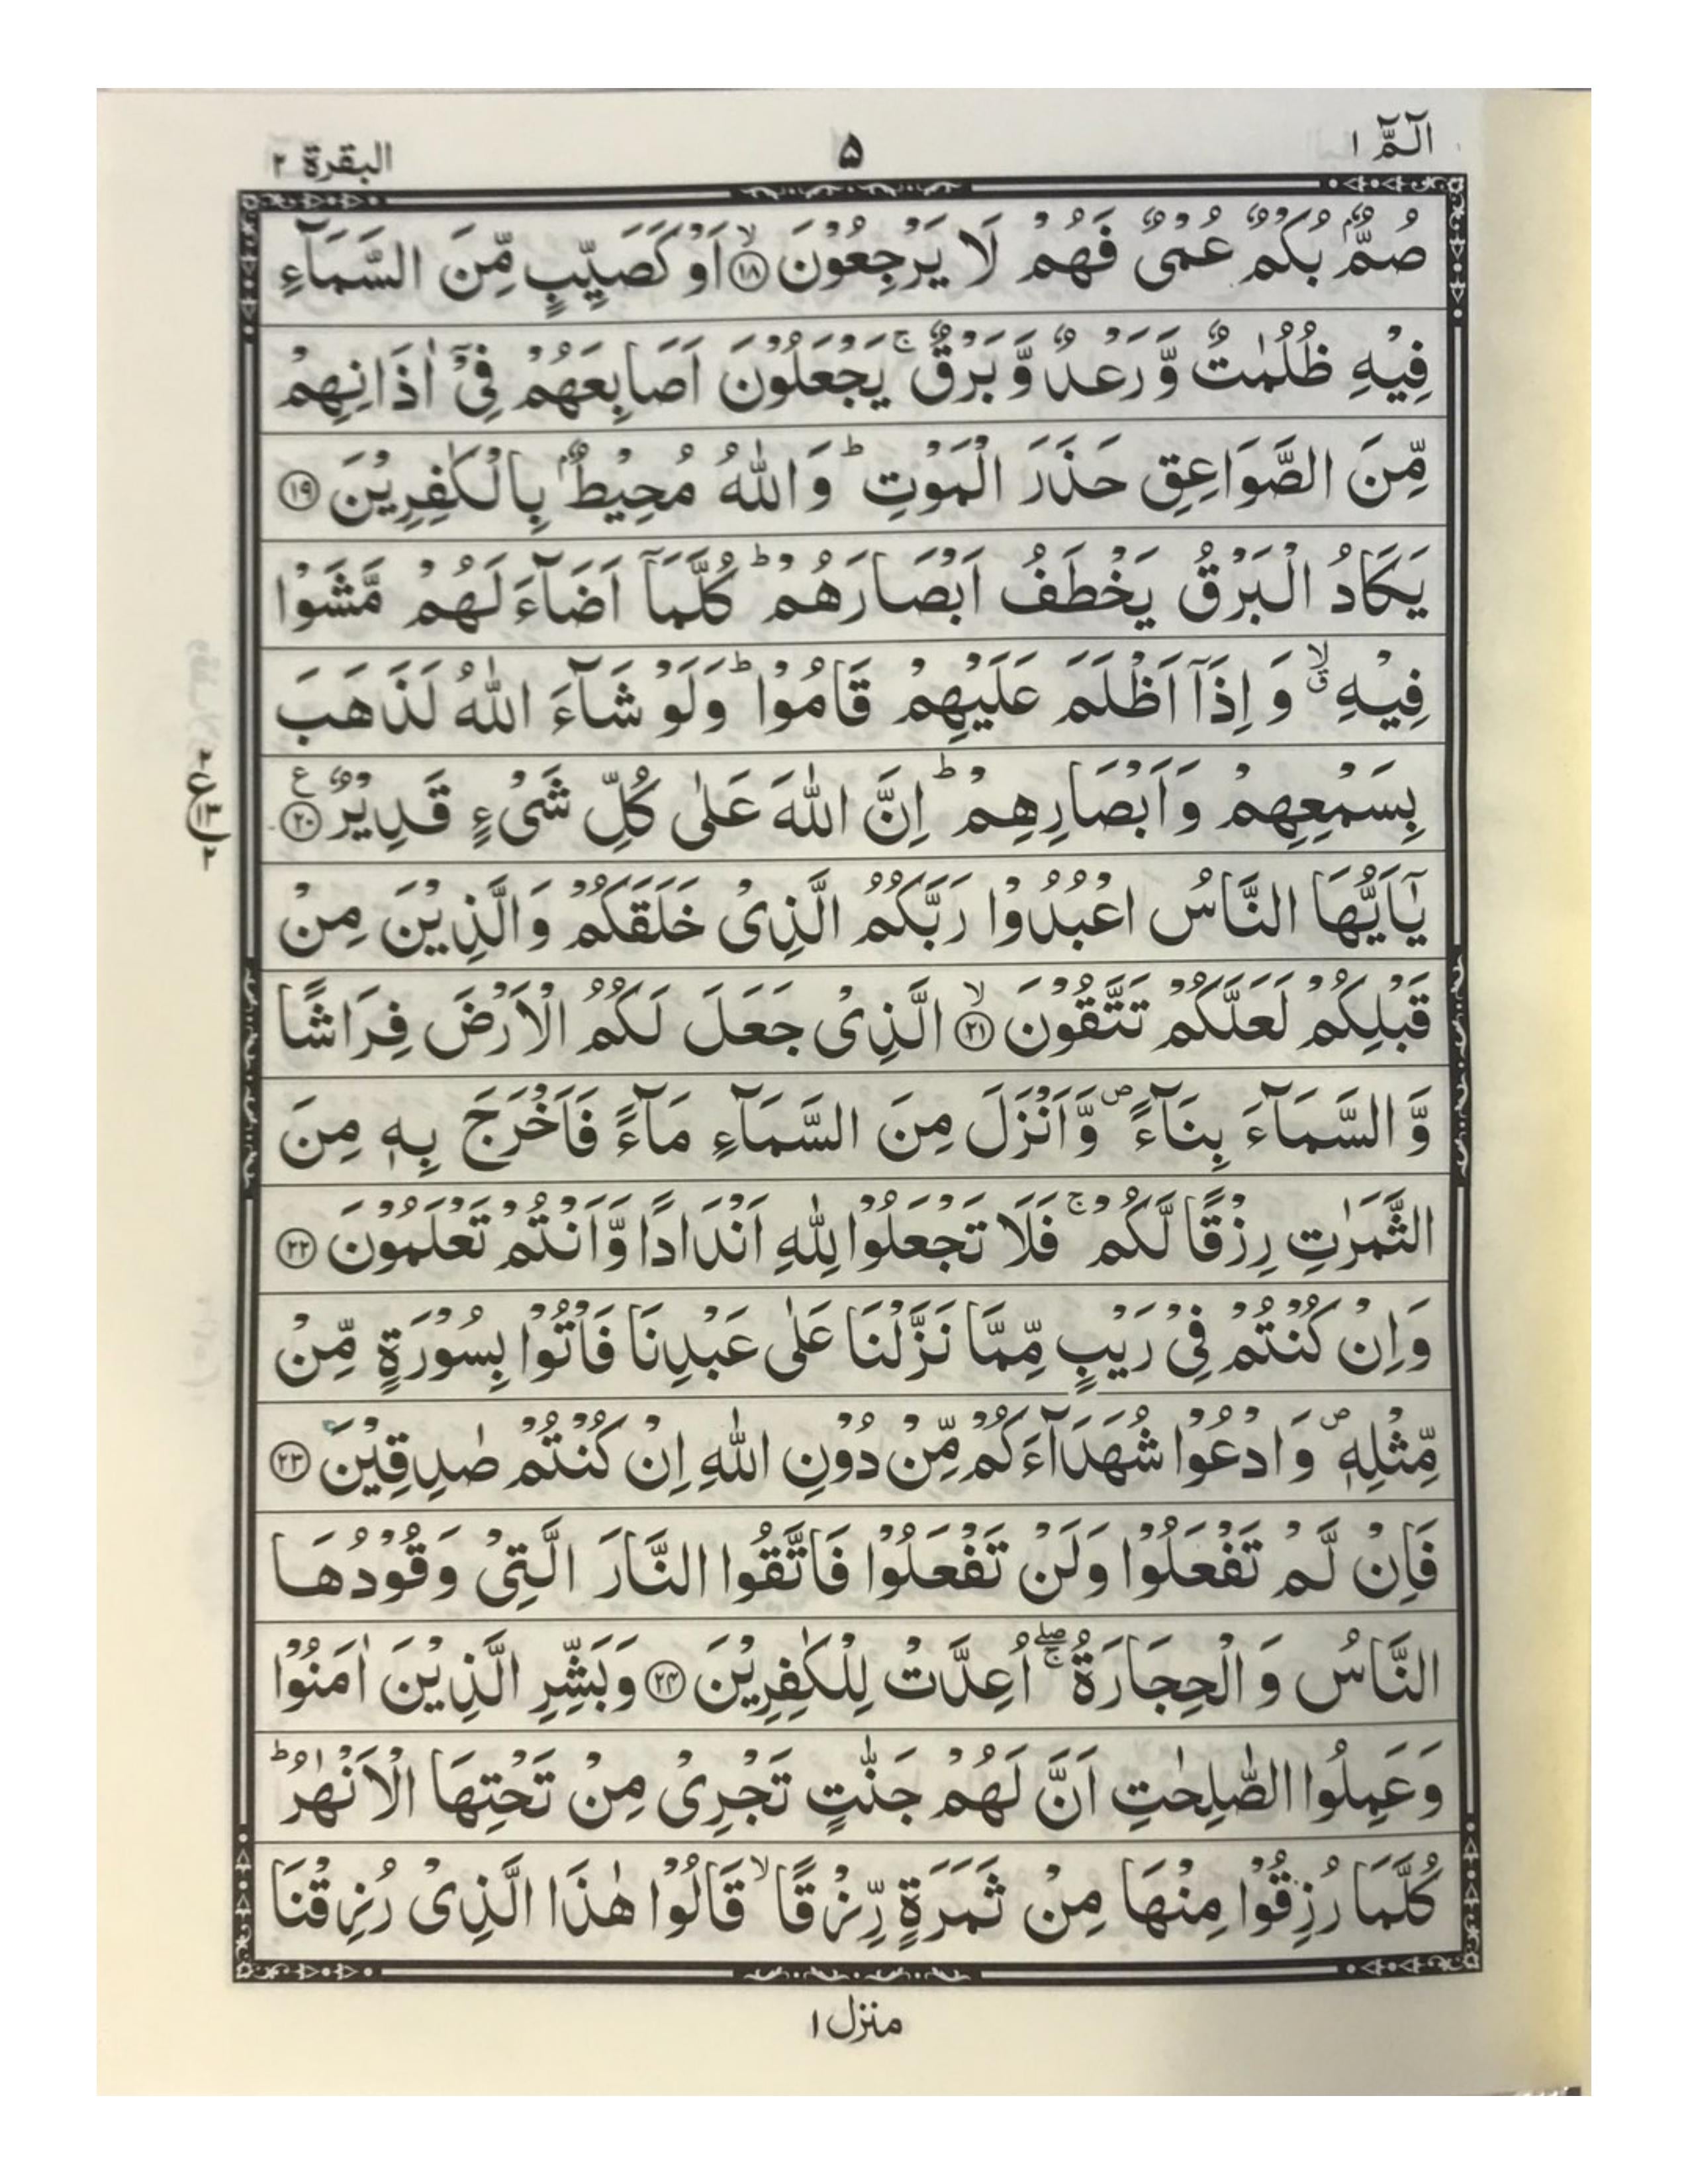 الٓـمّٓ ١
۵
البقرة ٢
صُمٌّۢ بُكْمٌ عُمْیٌ فَهُمْ لَا یَرْجِعُوْنَ ۙ‏﴿۱۸﴾ اَوْ كَصَیِّبٍ مِّنَ السَّمَآءِ
فِیْهِ ظُلُمٰتٌ وَّرَعْدٌ وَّبَرْقٌ ۚ یَجْعَلُوْنَ اَصَابِعَهُمْ فِیْۤ اٰذَانِهِمْ
مِّنَ الصَّوَاعِقِ حَذَرَ الْمَوْتِ ؕ وَاللّٰهُ مُحِیْطٌۢ بِالْكٰفِرِیْنَ ﴿۱۹﴾
یَكَادُ الْبَرْقُ یَخْطَفُ اَبْصَارَهُمْ ؕ كُلَّمَاۤ اَضَآءَ لَهُمْ مَّشَوْا
فِیْهِ ۙۗ وَ اِذَاۤ اَظْلَمَ عَلَیْهِمْ قَامُوْا ؕ وَلَوْ شَآءَ اللّٰهُ لَذَهَبَ
بِسَمْعِهِمْ وَاَبْصَارِهِمْ ؕ اِنَّ اللّٰهَ عَلٰی كُلِّ شَیْءٍ قَدِیْرٌ ﴿۲۰﴾ ع
یٰۤاَیُّهَا النَّاسُ اعْبُدُوْا رَبَّكُمُ الَّذِیْ خَلَقَكُمْ وَالَّذِیْنَ مِنْ
قَبْلِكُمْ لَعَلَّكُمْ تَتَّقُوْنَ ۙ‏﴿۲۱﴾ الَّذِیْ جَعَلَ لَكُمُ الْاَرْضَ فِرَاشًا
وَّ السَّمَآءَ بِنَآءً ۪ وَّاَنْزَلَ مِنَ السَّمَآءِ مَآءً فَاَخْرَجَ بِهٖ مِنَ
الثَّمَرٰتِ رِزْقًا لَّكُمْ ۚ فَلَا تَجْعَلُوْا لِلّٰهِ اَنْدَادًا وَّاَنْتُمْ تَعْلَمُوْنَ ﴿۲۲﴾
وَاِنْ كُنْتُمْ فِیْ رَیْبٍ مِّمَّا نَزَّلْنَا عَلٰی عَبْدِنَا فَاْتُوْا بِسُوْرَةٍ مِّنْ
مِّثْلِهٖ ۪ وَ ادْعُوْا شُهَدَآءَكُمْ مِّنْ دُوْنِ اللّٰهِ اِنْ كُنْتُمْ صٰدِقِیْنَ ﴿۲۳﴾
فَاِنْ لَّمْ تَفْعَلُوْا وَلَنْ تَفْعَلُوْا فَاتَّقُوا النَّارَ الَّتِیْ وَقُوْدُهَا
النَّاسُ وَ الْحِجَارَةُ ۖۚ اُعِدَّتْ لِلْكٰفِرِیْنَ ﴿۲۴﴾ وَبَشِّرِ الَّذِیْنَ اٰمَنُوْا
وَعَمِلُوا الصّٰلِحٰتِ اَنَّ لَهُمْ جَنّٰتٍ تَجْرِیْ مِنْ تَحْتِهَا الْاَنْهٰرُ ؕ
كُلَّمَا رُزِقُوْا مِنْهَا مِنْ ثَمَرَةٍ رِّزْقًا ۙ قَالُوْا هٰذَا الَّذِیْ رُزِقْنَا
منزل ١